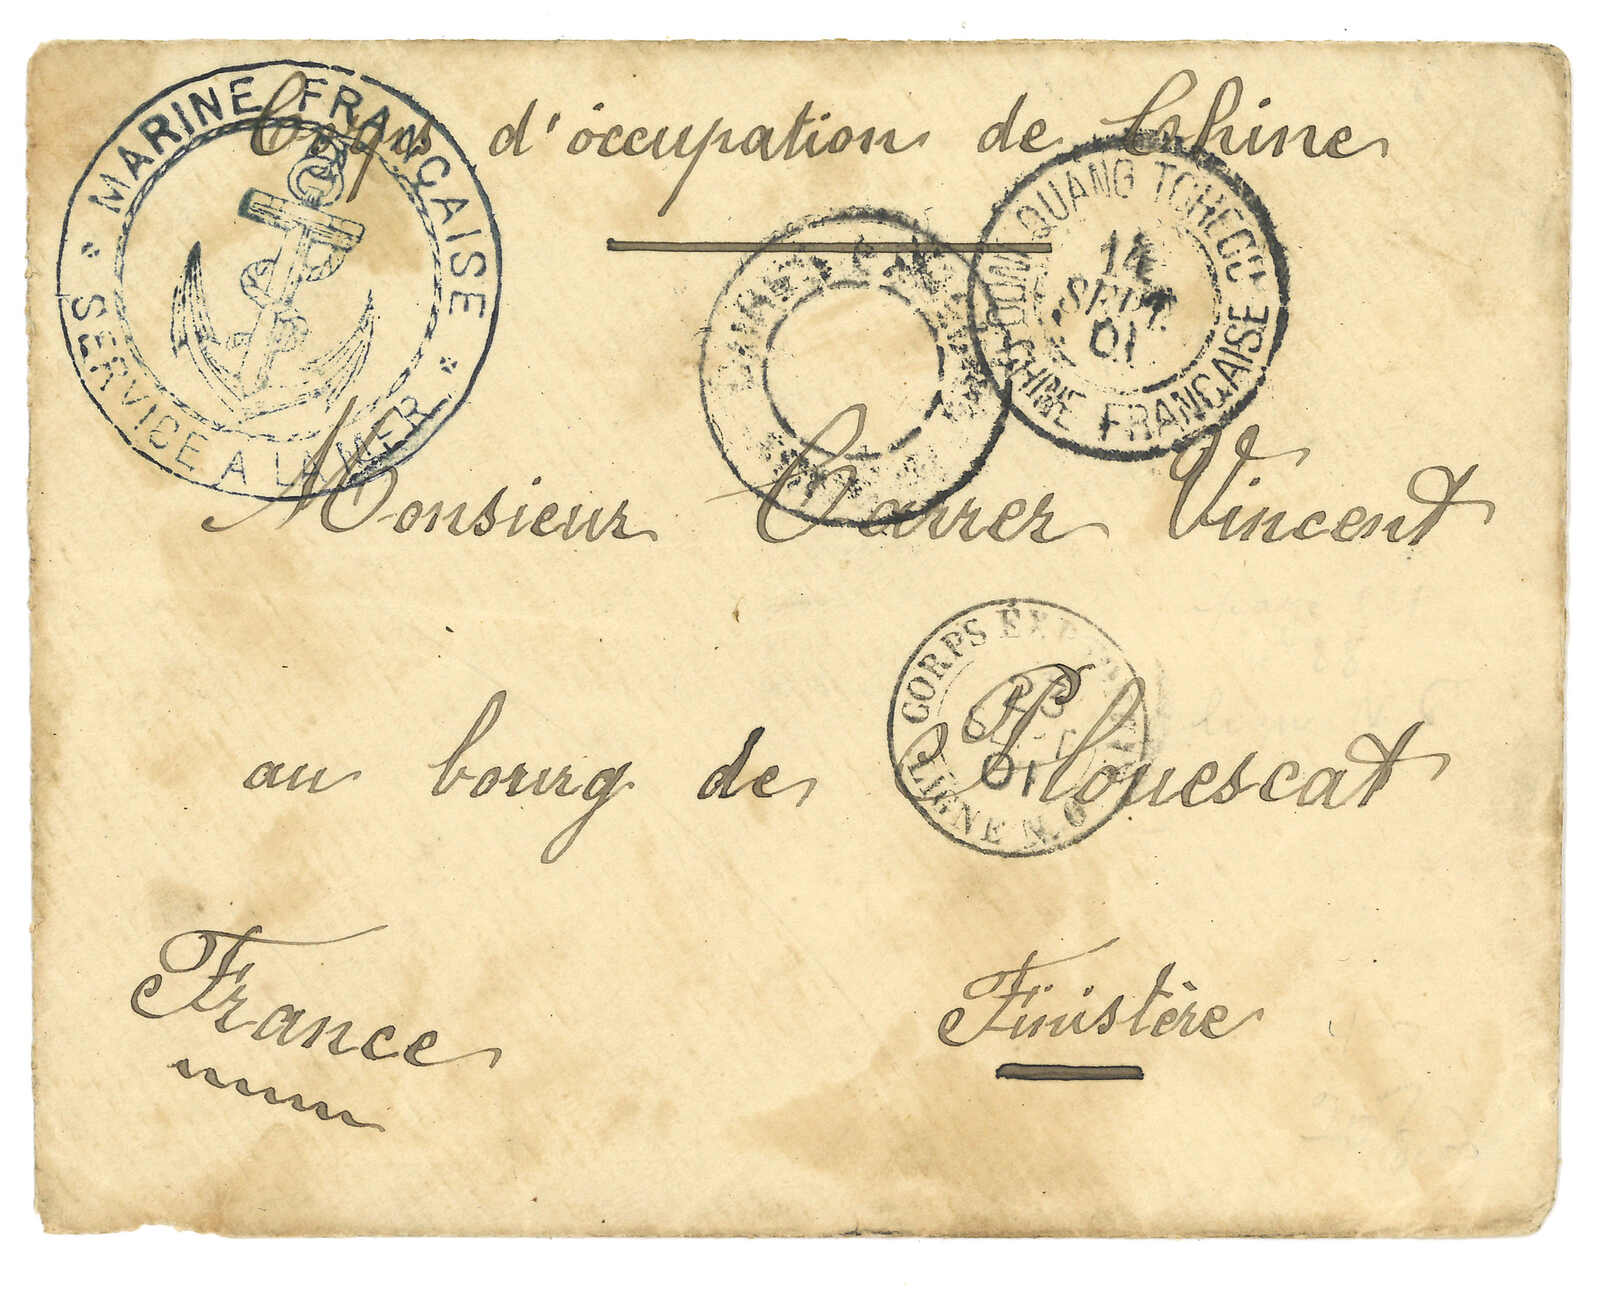 Corps d'occupation de Chine
MARINE FRANÇAISE
SERVICE A LA MER
QUANG TCHEOU
14
SEPT
01
CHINE FRANÇAISE
Monsieur Carrer Vincent
CORPS
01
LIGNE N. 6
au bourg de Plouescat
France
Finistère